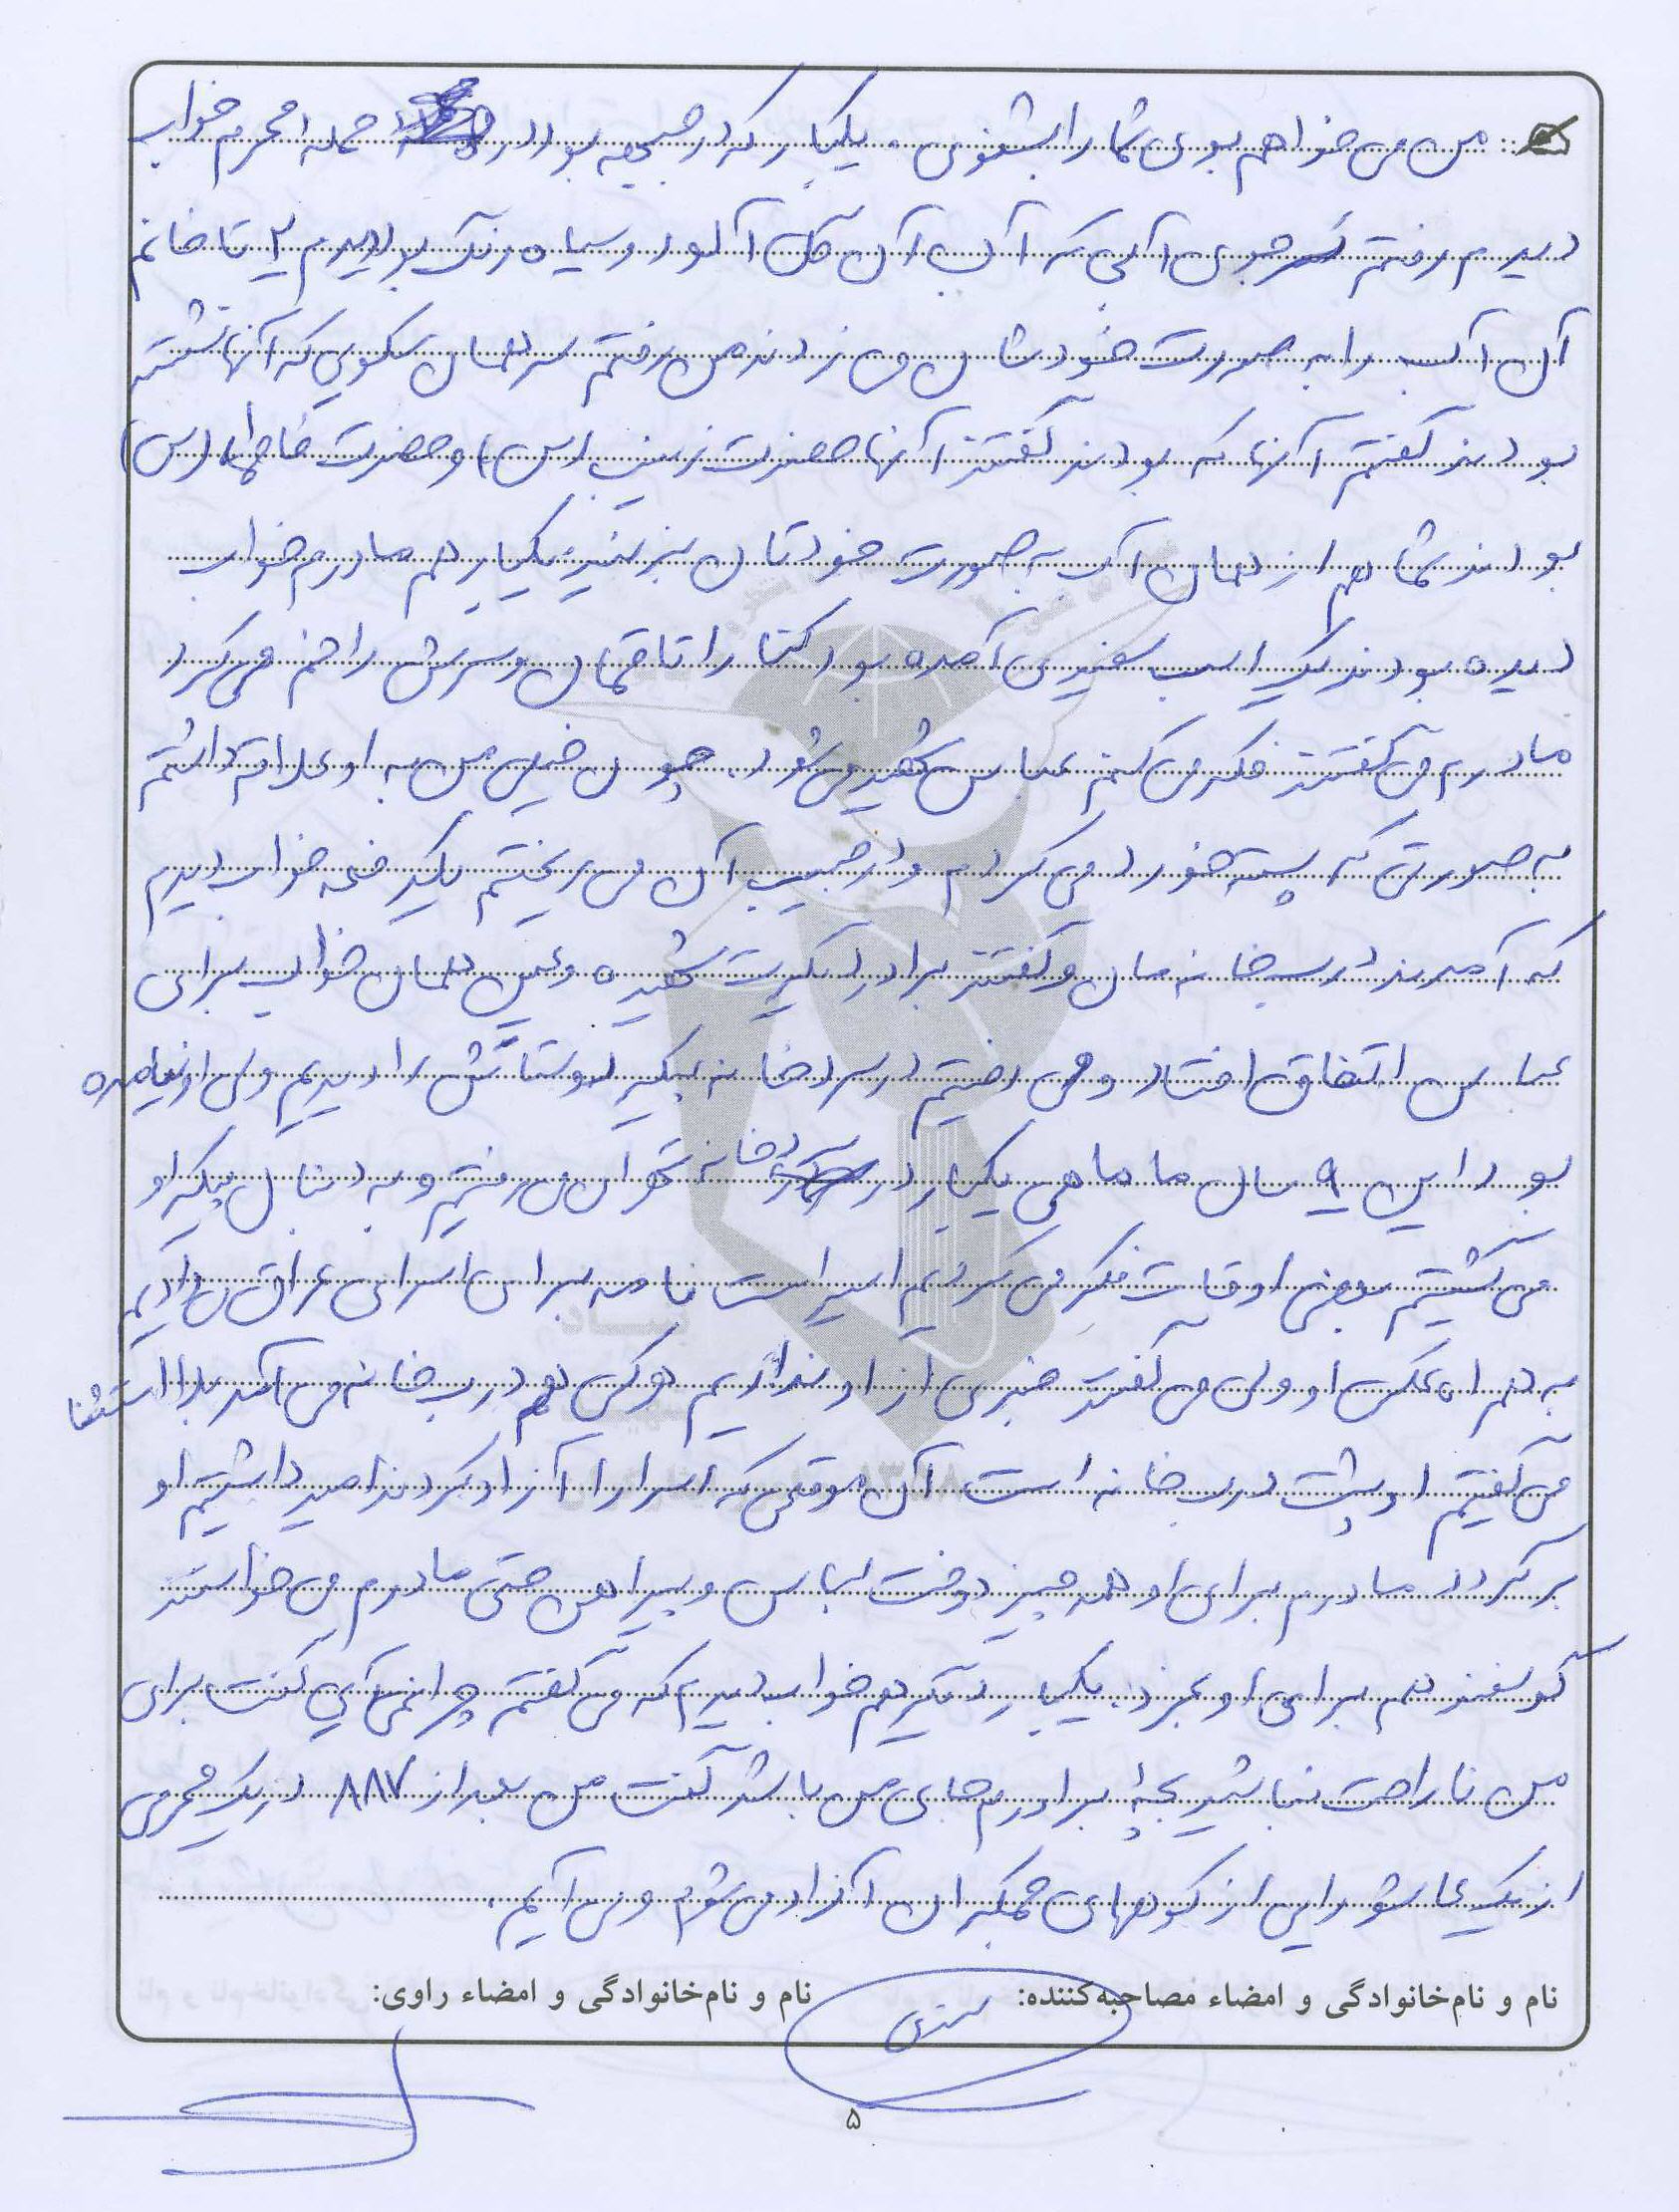 من می خواهم بوی شما را بشنوی. یکبار که در جبهه بود در حمله محرم خواب
دیدم رفتم سر جوی آبی که آب آن گل آلود و سیاه رنگ بود دیدم ۲ تا خانم
آن آب را به صورت خودشان می زدند من رفتم سر همان سکویی که آنها نشسته
بودند گفتم آنها که بودند گفتند آنها حضرت زینب (س) و حضرت فاطمه (س)
بودند شما هم از همان آب به صورت خودتان بزنید یکبار هم مادرم خواب
دیده بودند یک اسب سفیدی آمده بود کنار اتاقمان و سرش را خم می کرد
مادرم می گفتند فکر می کنم عباس شهید می شود. چون خیلی من به او علاقه داشتم
به صورتی که پسته خورد می کردم و در جیب آن می ریختم یکدفعه خواب دیدم
که آمدند درب خانه مان و گفتند برادر دیگرت شهیده و عین همان خواب برای
عباس اتفاق افتاد و می رفتیم در سردخانه پیکر دوستانش را دیدیم ولی او نیامده
بود این ۹ سال ما ماهی یکبار در سردخانه تهران می رفتیم و به دنبال پیکر او
می گشتیم بعضی اوقات فکر می کردیم اسیر است نامه برای اسرای عراق می دادیم
به همراه عکس او ولی می گفتند خبری از او نداریم هر کس هم درب خانه می آمد بلا استثنا
می گفتیم او پشت درب خانه است آن موقعی که اسرا را آزاد کردند امید داشتیم او
برگردد مادرم برای او همه چیز دوخت لباس و پیراهن حتی مادرم می خواستند
گوسفند هم برای او بخرند. یکبار دیگر هم خواب دیدم که می گفتم چرا نمی آیی گفت برای
من ناراحت نباشید بچه برادرم جای من باشد گفت من بعد از ۸۸۷ در یک محرمی
از یک عاشورایی از کوههای حمکران آزاد می شوم و می آیم.
نام و نام‌خانوادگی و امضاء مصاحبه‌کننده: نام و نام‌خانوادگی و امضاء راوی:
۵